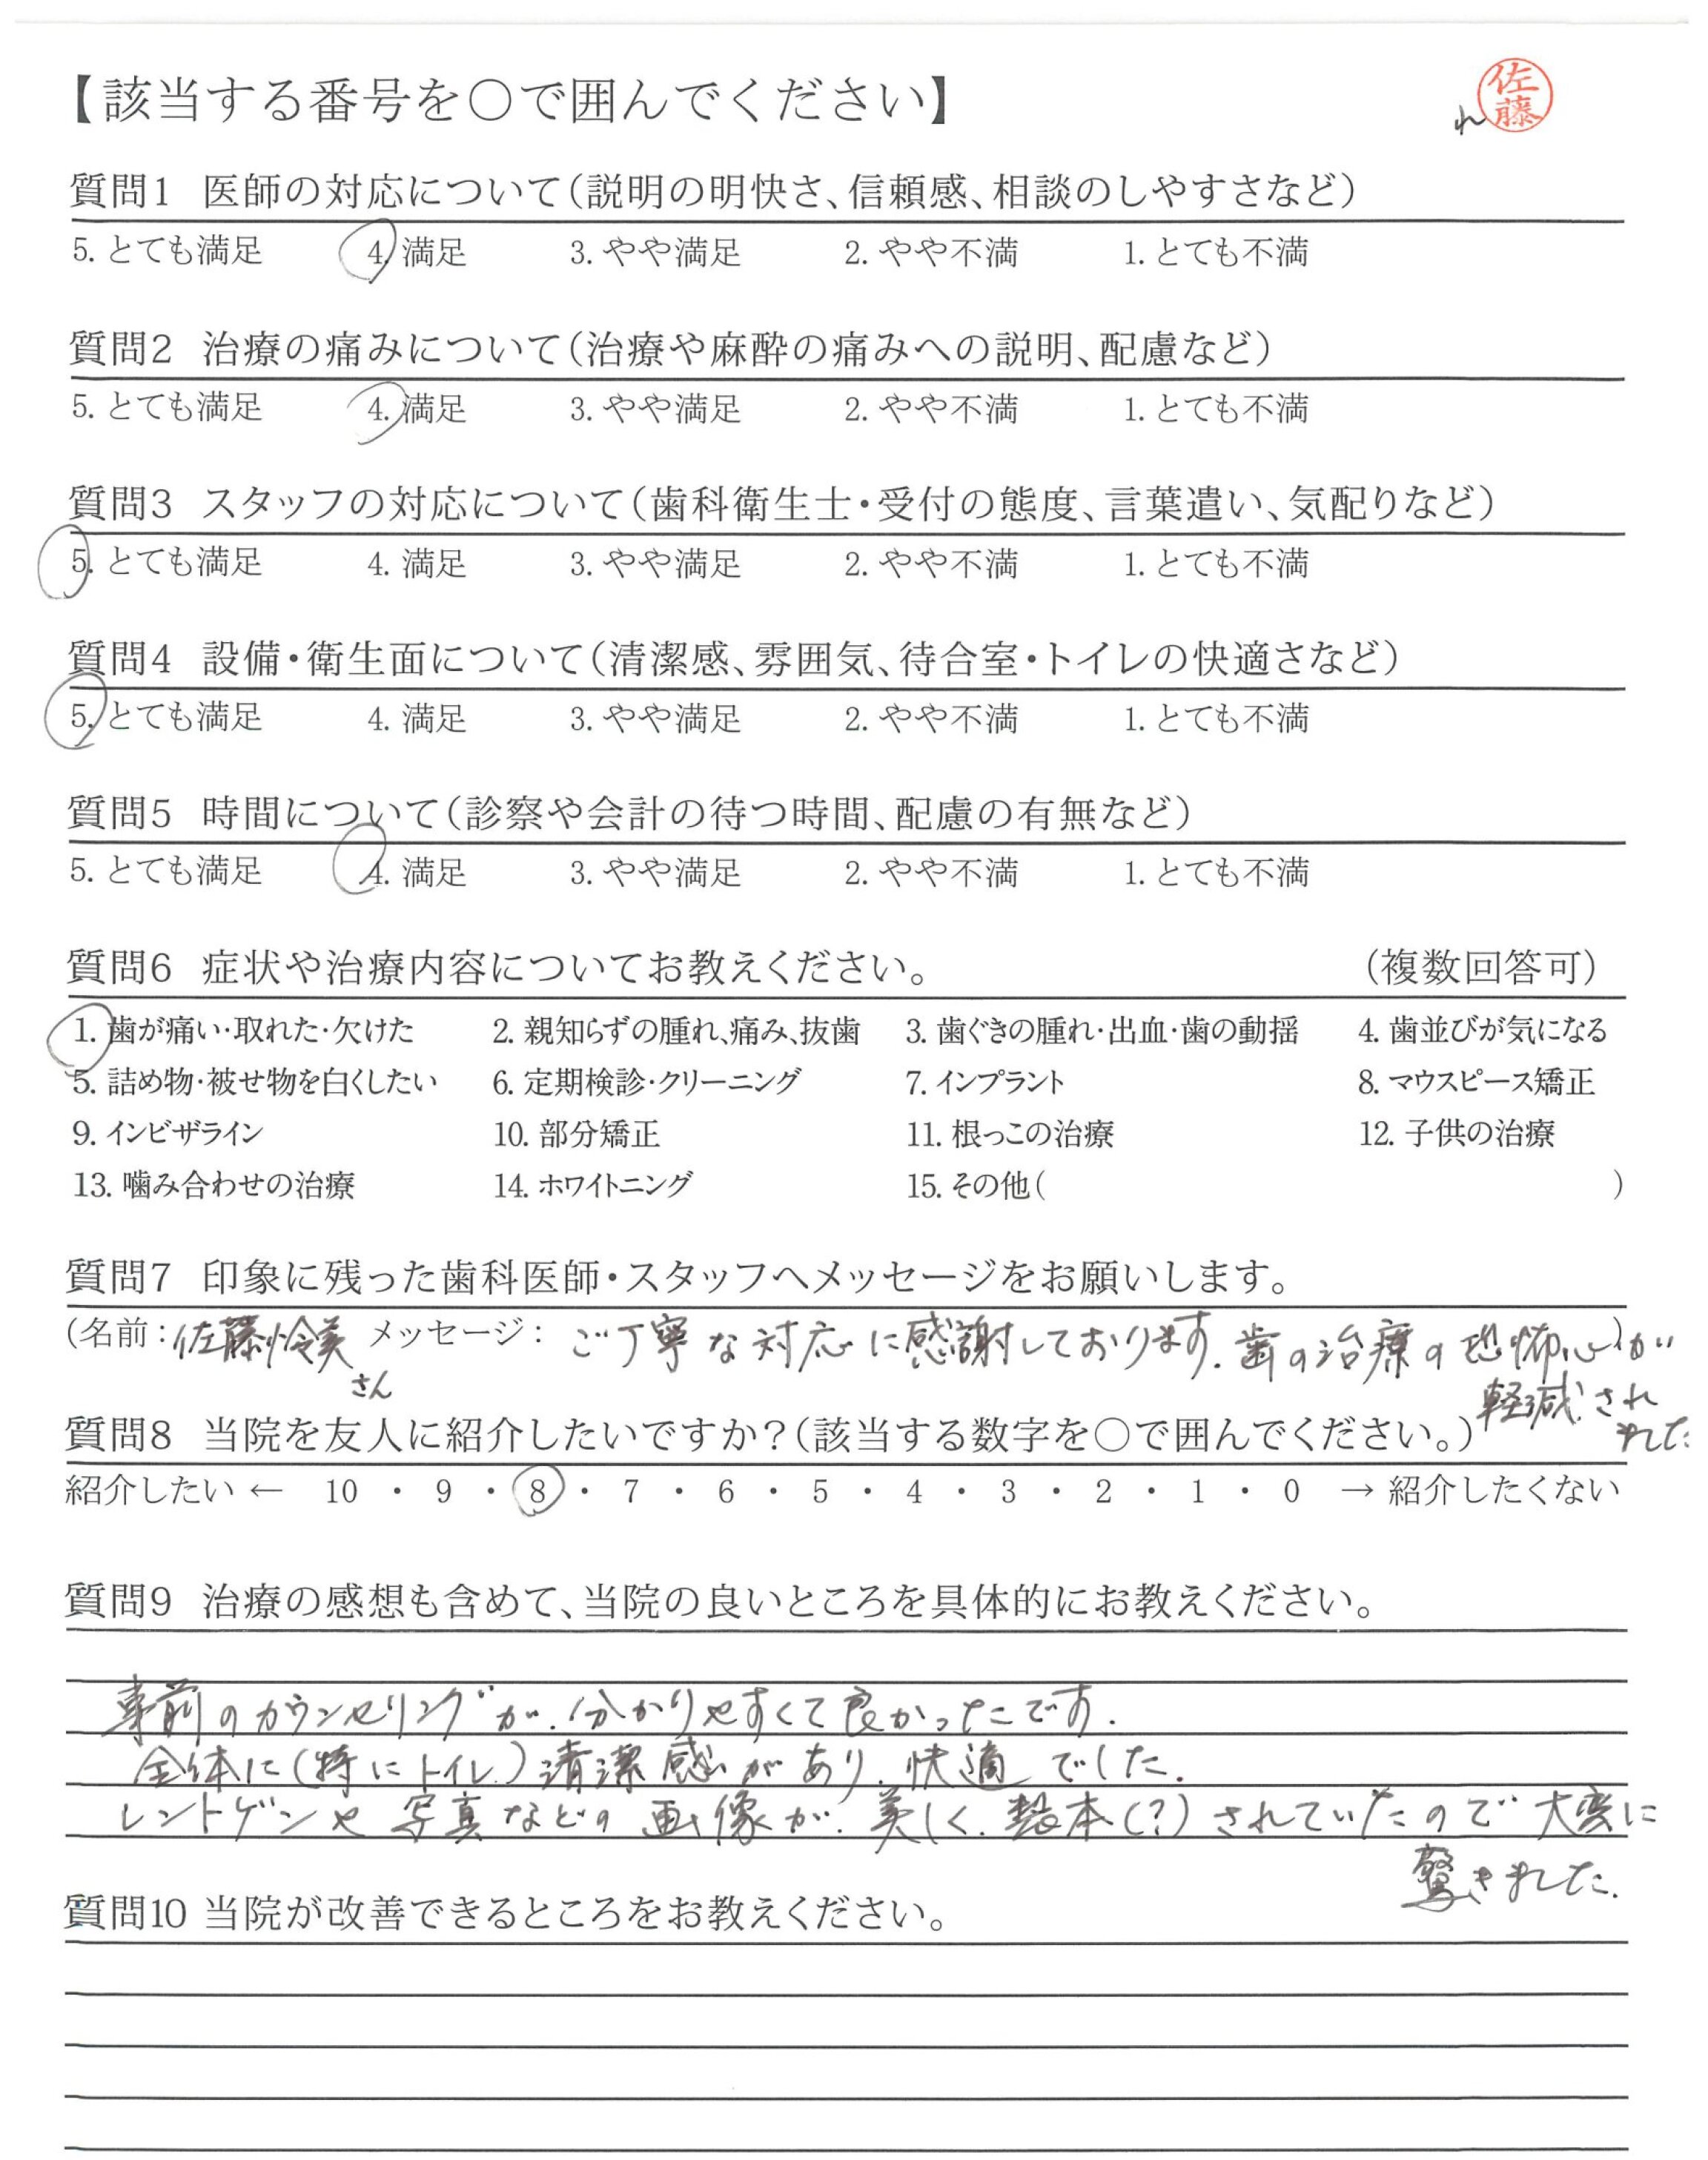 【該当する番号を○で囲んでください】
れ 佐藤
質問1 医師の対応について(説明の明快さ、信頼感、相談のしやすさなど)
5. とても満足 4. 満足 3. やや満足 2. やや不満 1. とても不満
質問2 治療の痛みについて(治療や麻酔の痛みへの説明、配慮など)
5. とても満足 4. 満足 3. やや満足 2. やや不満 1. とても不満
質問3 スタッフの対応について(歯科衛生士・受付の態度、言葉遣い、気配りなど)
5. とても満足 4. 満足 3. やや満足 2. やや不満 1. とても不満
質問4 設備・衛生面について(清潔感、雰囲気、待合室・トイレの快適さなど)
5. とても満足 4. 満足 3. やや満足 2. やや不満 1. とても不満
質問5 時間について(診察や会計の待つ時間、配慮の有無など)
5. とても満足 4. 満足 3. やや満足 2. やや不満 1. とても不満
質問6 症状や治療内容についてお教えください。 (複数回答可)
1. 歯が痛い・取れた・欠けた 2. 親知らずの腫れ、痛み、抜歯 3. 歯ぐきの腫れ・出血・歯の動揺 4. 歯並びが気になる
5. 詰め物・被せ物を白くしたい 6. 定期検診・クリーニング 7. インプラント 8. マウスピース矯正
9. インビザライン 10. 部分矯正 11. 根っこの治療 12. 子供の治療
13. 噛み合わせの治療 14. ホワイトニング 15. その他( )
質問7 印象に残った歯科医師・スタッフへメッセージをお願いします。
(名前：佐藤怜美 メッセージ： ご丁寧な対応に感謝しております. 歯の治療の恐怖心)が
さん 軽減され
質問8 当院を友人に紹介したいですか？(該当する数字を○で囲んでください。) ました
紹介したい ← 10 ・ 9 ・ 8 ・ 7 ・ 6 ・ 5 ・ 4 ・ 3 ・ 2 ・ 1 ・ 0 → 紹介したくない
質問9 治療の感想も含めて、当院の良いところを具体的にお教えください。
事前のカウンセリングが、分かりやすくて良かったです.
全体に(特にトイレ)清潔感があり、快適でした.
レントゲンや写真などの画像が、美しく、製本(?)されていたので大変に
驚きました.
質問10 当院が改善できるところをお教えください。